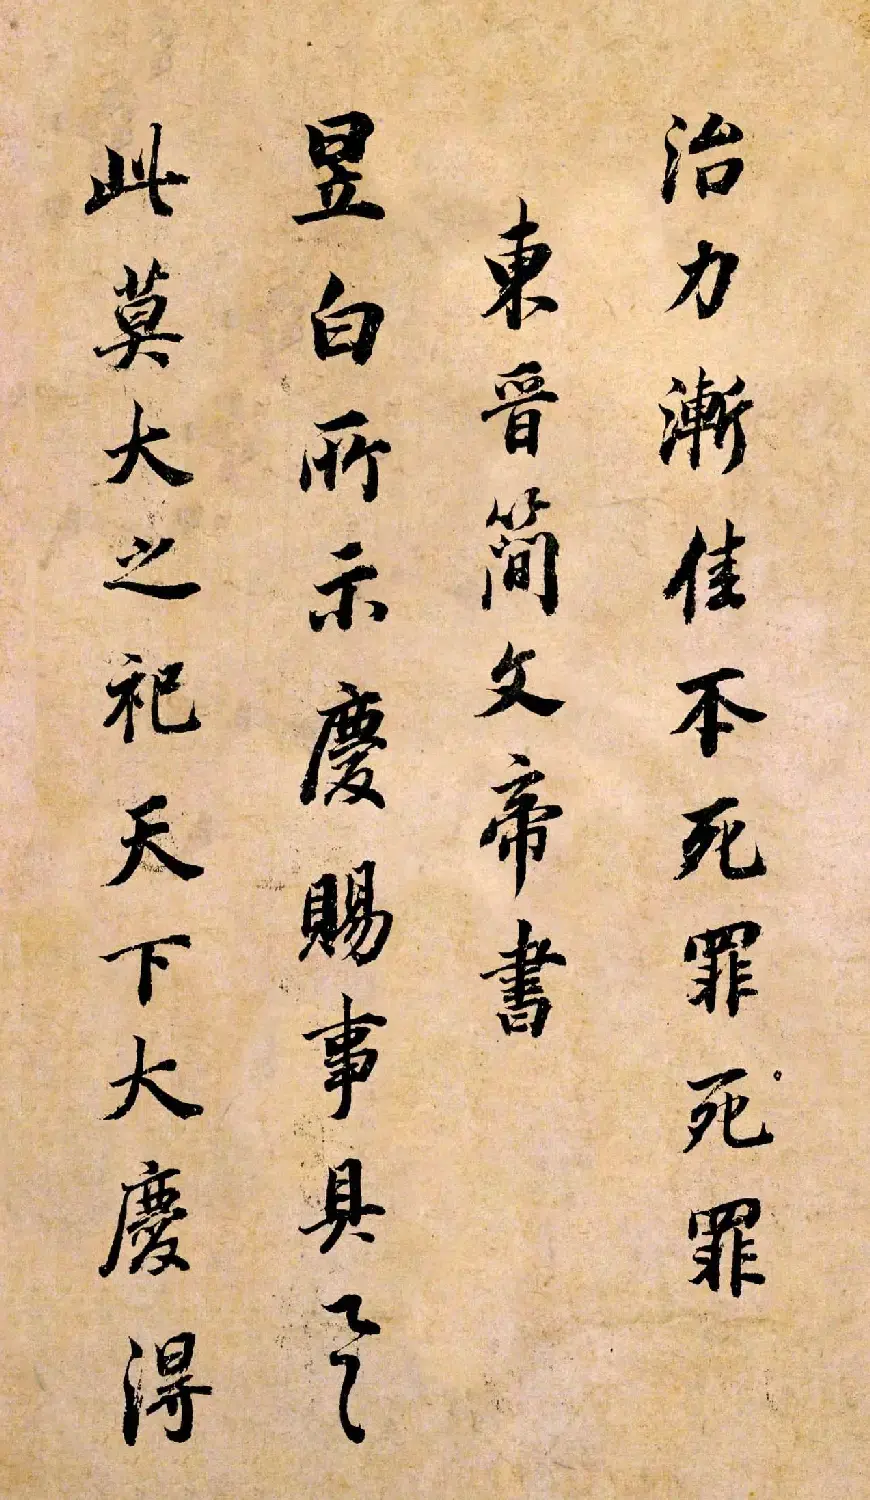 治力漸佳不死罪死罪
東晉簡文帝書
昱白所示慶賜事具
此莫大之祀天下大慶得